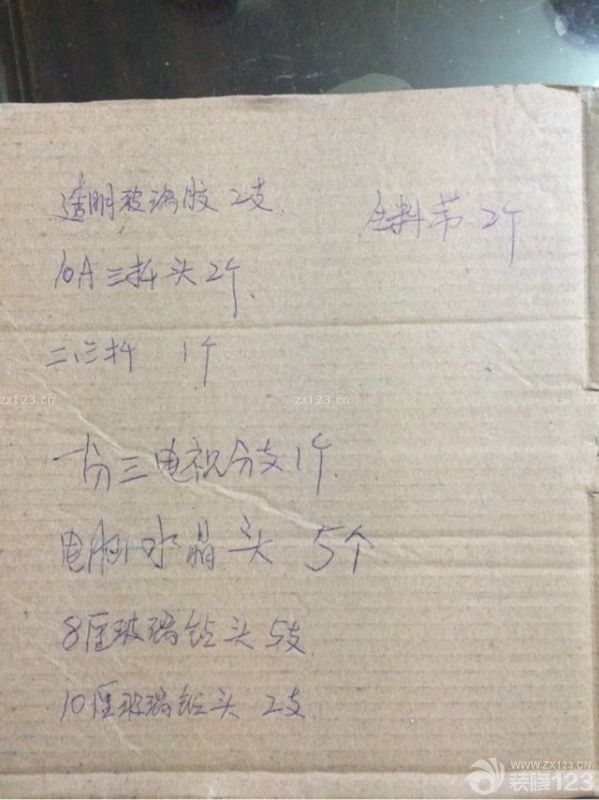 透明玻璃胶 2支
生料带 2个
10A三插头 2个
二三插 1个
一分三电视分支 1个
电脑水晶头 5个
8厘玻璃钻头 5支
10厘玻璃钻头 2支
zx123.cn
zx123.cn
WWW.ZX123.CN
装修123